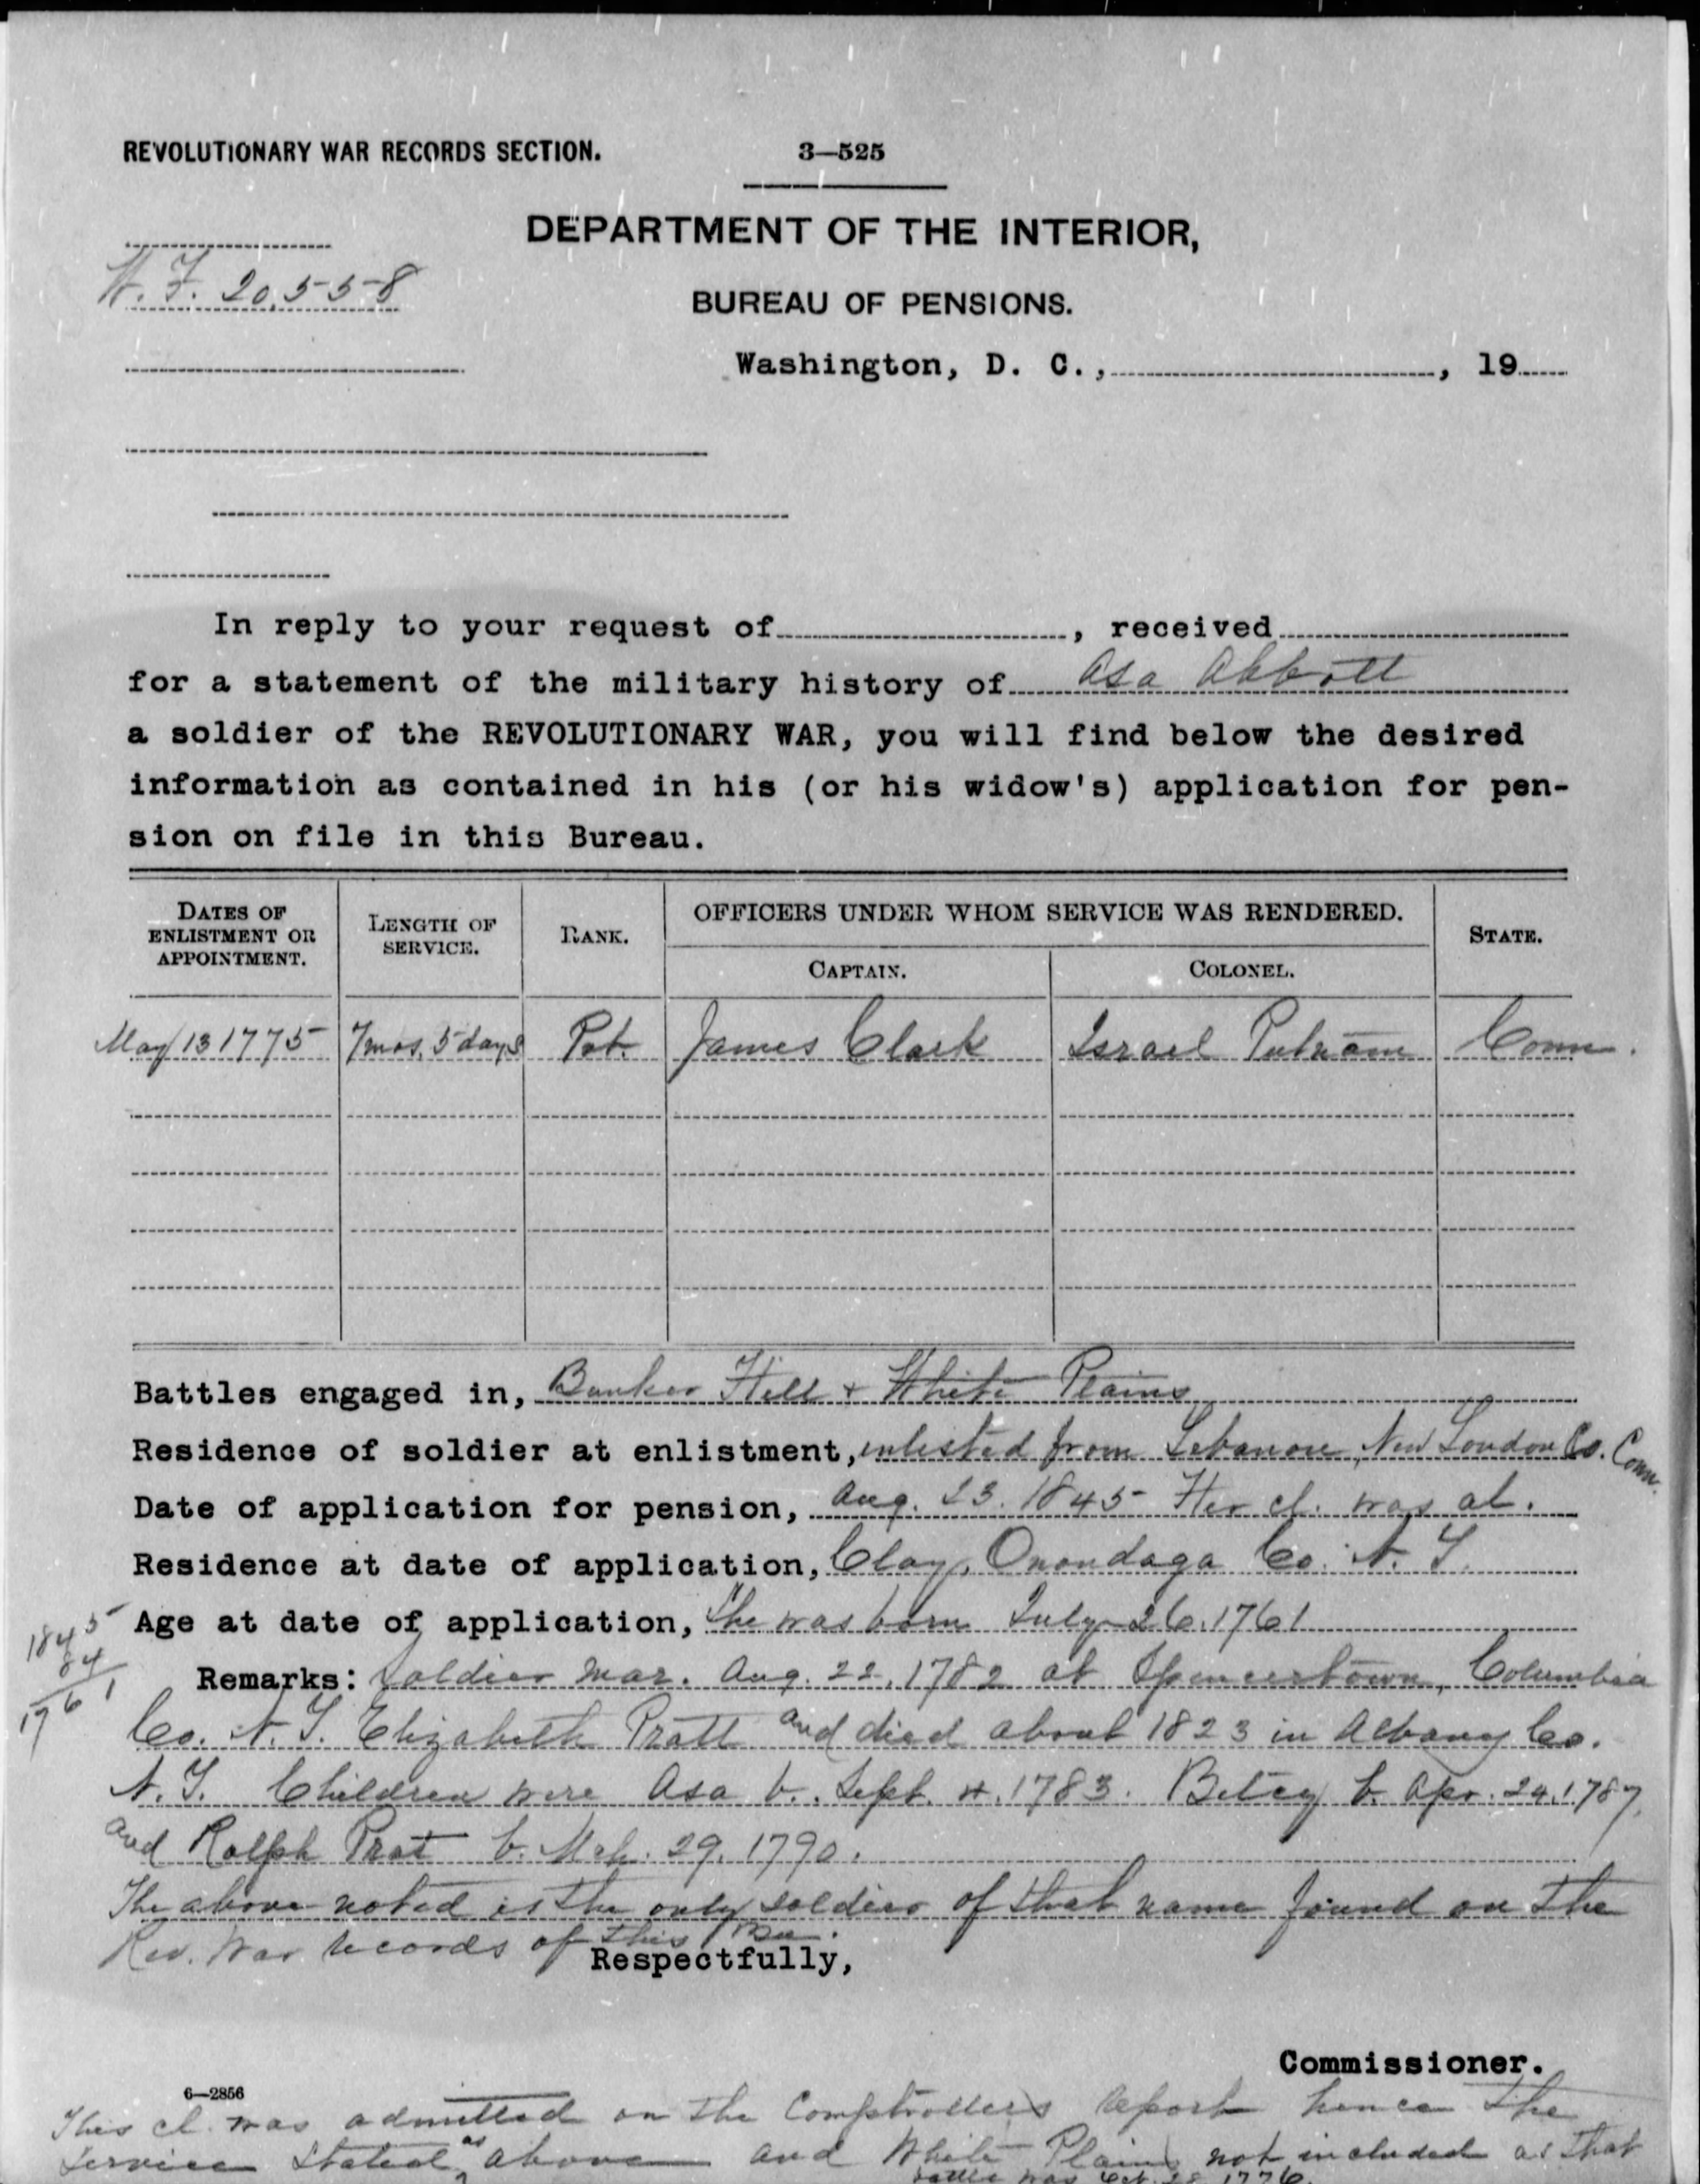 REVOLUTIONARY WAR RECORDS SECTION. 3—525
DEPARTMENT OF THE INTERIOR,
W. F. 20,558
BUREAU OF PENSIONS.
Washington, D. C., , 19
In reply to your request of , received
for a statement of the military history of Asa Abbott
a soldier of the REVOLUTIONARY WAR, you will find below the desired
information as contained in his (or his widow's) application for pen-
sion on file in this Bureau.
DATES OF ENLISTMENT OR APPOINTMENT. LENGTH OF SERVICE. RANK. OFFICERS UNDER WHOM SERVICE WAS RENDERED. STATE.
CAPTAIN. COLONEL.
May 13 1775 7 mos. 5 days Pvt. James Clark Israel Putnam Conn.
Battles engaged in, Bunker Hill + White Plains
Residence of soldier at enlistment, enlisted from Lebanon, New London Co. Conn.
Date of application for pension, Aug. 23. 1845 Her cl. was al.
Residence at date of application, Clay, Onondaga Co. N. Y.
Age at date of application, She was born July 26. 1761
1845
84
1761
Remarks: Soldier mar. Aug. 22, 1782 at Spencertown, Columbia
Co. N. Y. Elizabeth Pratt and died about 1823 in Albany Co.
N. Y. Children were Asa b. Sept. 4. 1783. Betcy b. Apr. 24. 1787,
and Ralph Prat b. Mch. 29. 1790.
The above noted is the only soldier of that name found on the
Rev. War records of this Bu.
Respectfully,
Commissioner.
6—2856
This cl. was admitted on the Comptrollers report hence the
service stated as above and White Plains not included as that
battle was Oct. 28 1776.